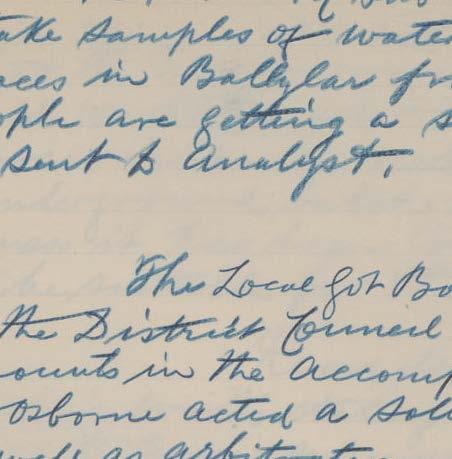 take samples of water
aces in Ballylar fr
ople are getting a s
sent to Analyst.
The Local Got Bo
the District Council
ounts in the accomp
Osborne acted a sol
well as arbitrator